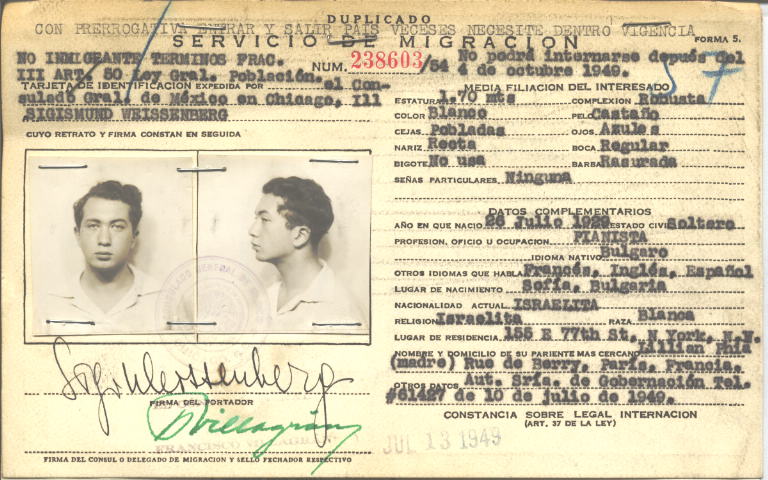 DUPLICADO
CON PRERROGATIVA ENTRAR Y SALIR PAIS VECESES NECESITE DENTRO VIGENCIA
SERVICIO DE MIGRACION
FORMA 5.
NO INMIGRANTE TERMINOS FRAC.
III ART. 50 Ley Gral. Población.
NUM. 238603/54
No podrá internarse después del
4 de octubre 1949.
57
TARJETA DE IDENTIFICACION EXPEDIDA POR el Con-
sulado Gral. de México en Chicago, Ill
SIGISMUND WEISSENBERG
CUYO RETRATO Y FIRMA CONSTAN EN SEGUIDA
MEDIA FILIACION DEL INTERESADO
ESTATURA 1.70 mts COMPLEXION Robusta
COLOR Blanco PELO Castaño
CEJAS Pobladas OJOS Azules
NARIZ Recta BOCA Regular
BIGOTE No usa BARBA Rasurada
SEÑAS PARTICULARES Ninguna
DATOS COMPLEMENTARIOS
AÑO EN QUE NACIO 26 Julio 1929 ESTADO CIVIL Soltero
PROFESION, OFICIO U OCUPACION. PIANISTA
IDIOMA NATIVO Bulgaro
OTROS IDIOMAS QUE HABLA Francés, Inglés, Español
LUGAR DE NACIMIENTO Sofía, Bulgaria
NACIONALIDAD ACTUAL ISRAELITA
RELIGION Israelita RAZA Blanca
LUGAR DE RESIDENCIA 155 E 77th St, N York, N.N.
NOMBRE Y DOMICILIO DE SU PARIENTE MAS CERCANO
(madre) Rue de Berry, París, Francia.
OTROS DATOS Aut. Sría. de Gobernación Tel.
#61427 de 10 de julio de 1949.
CONSTANCIA SOBRE LEGAL INTERNACION
(ART. 37 DE LA LEY)
Sigi Weissenberg
FIRMA DEL PORTADOR
Villagrán
JUL 13 1949
FIRMA DEL CONSUL O DELEGADO DE MIGRACION Y SELLO FECHADOR RESPECTIVO